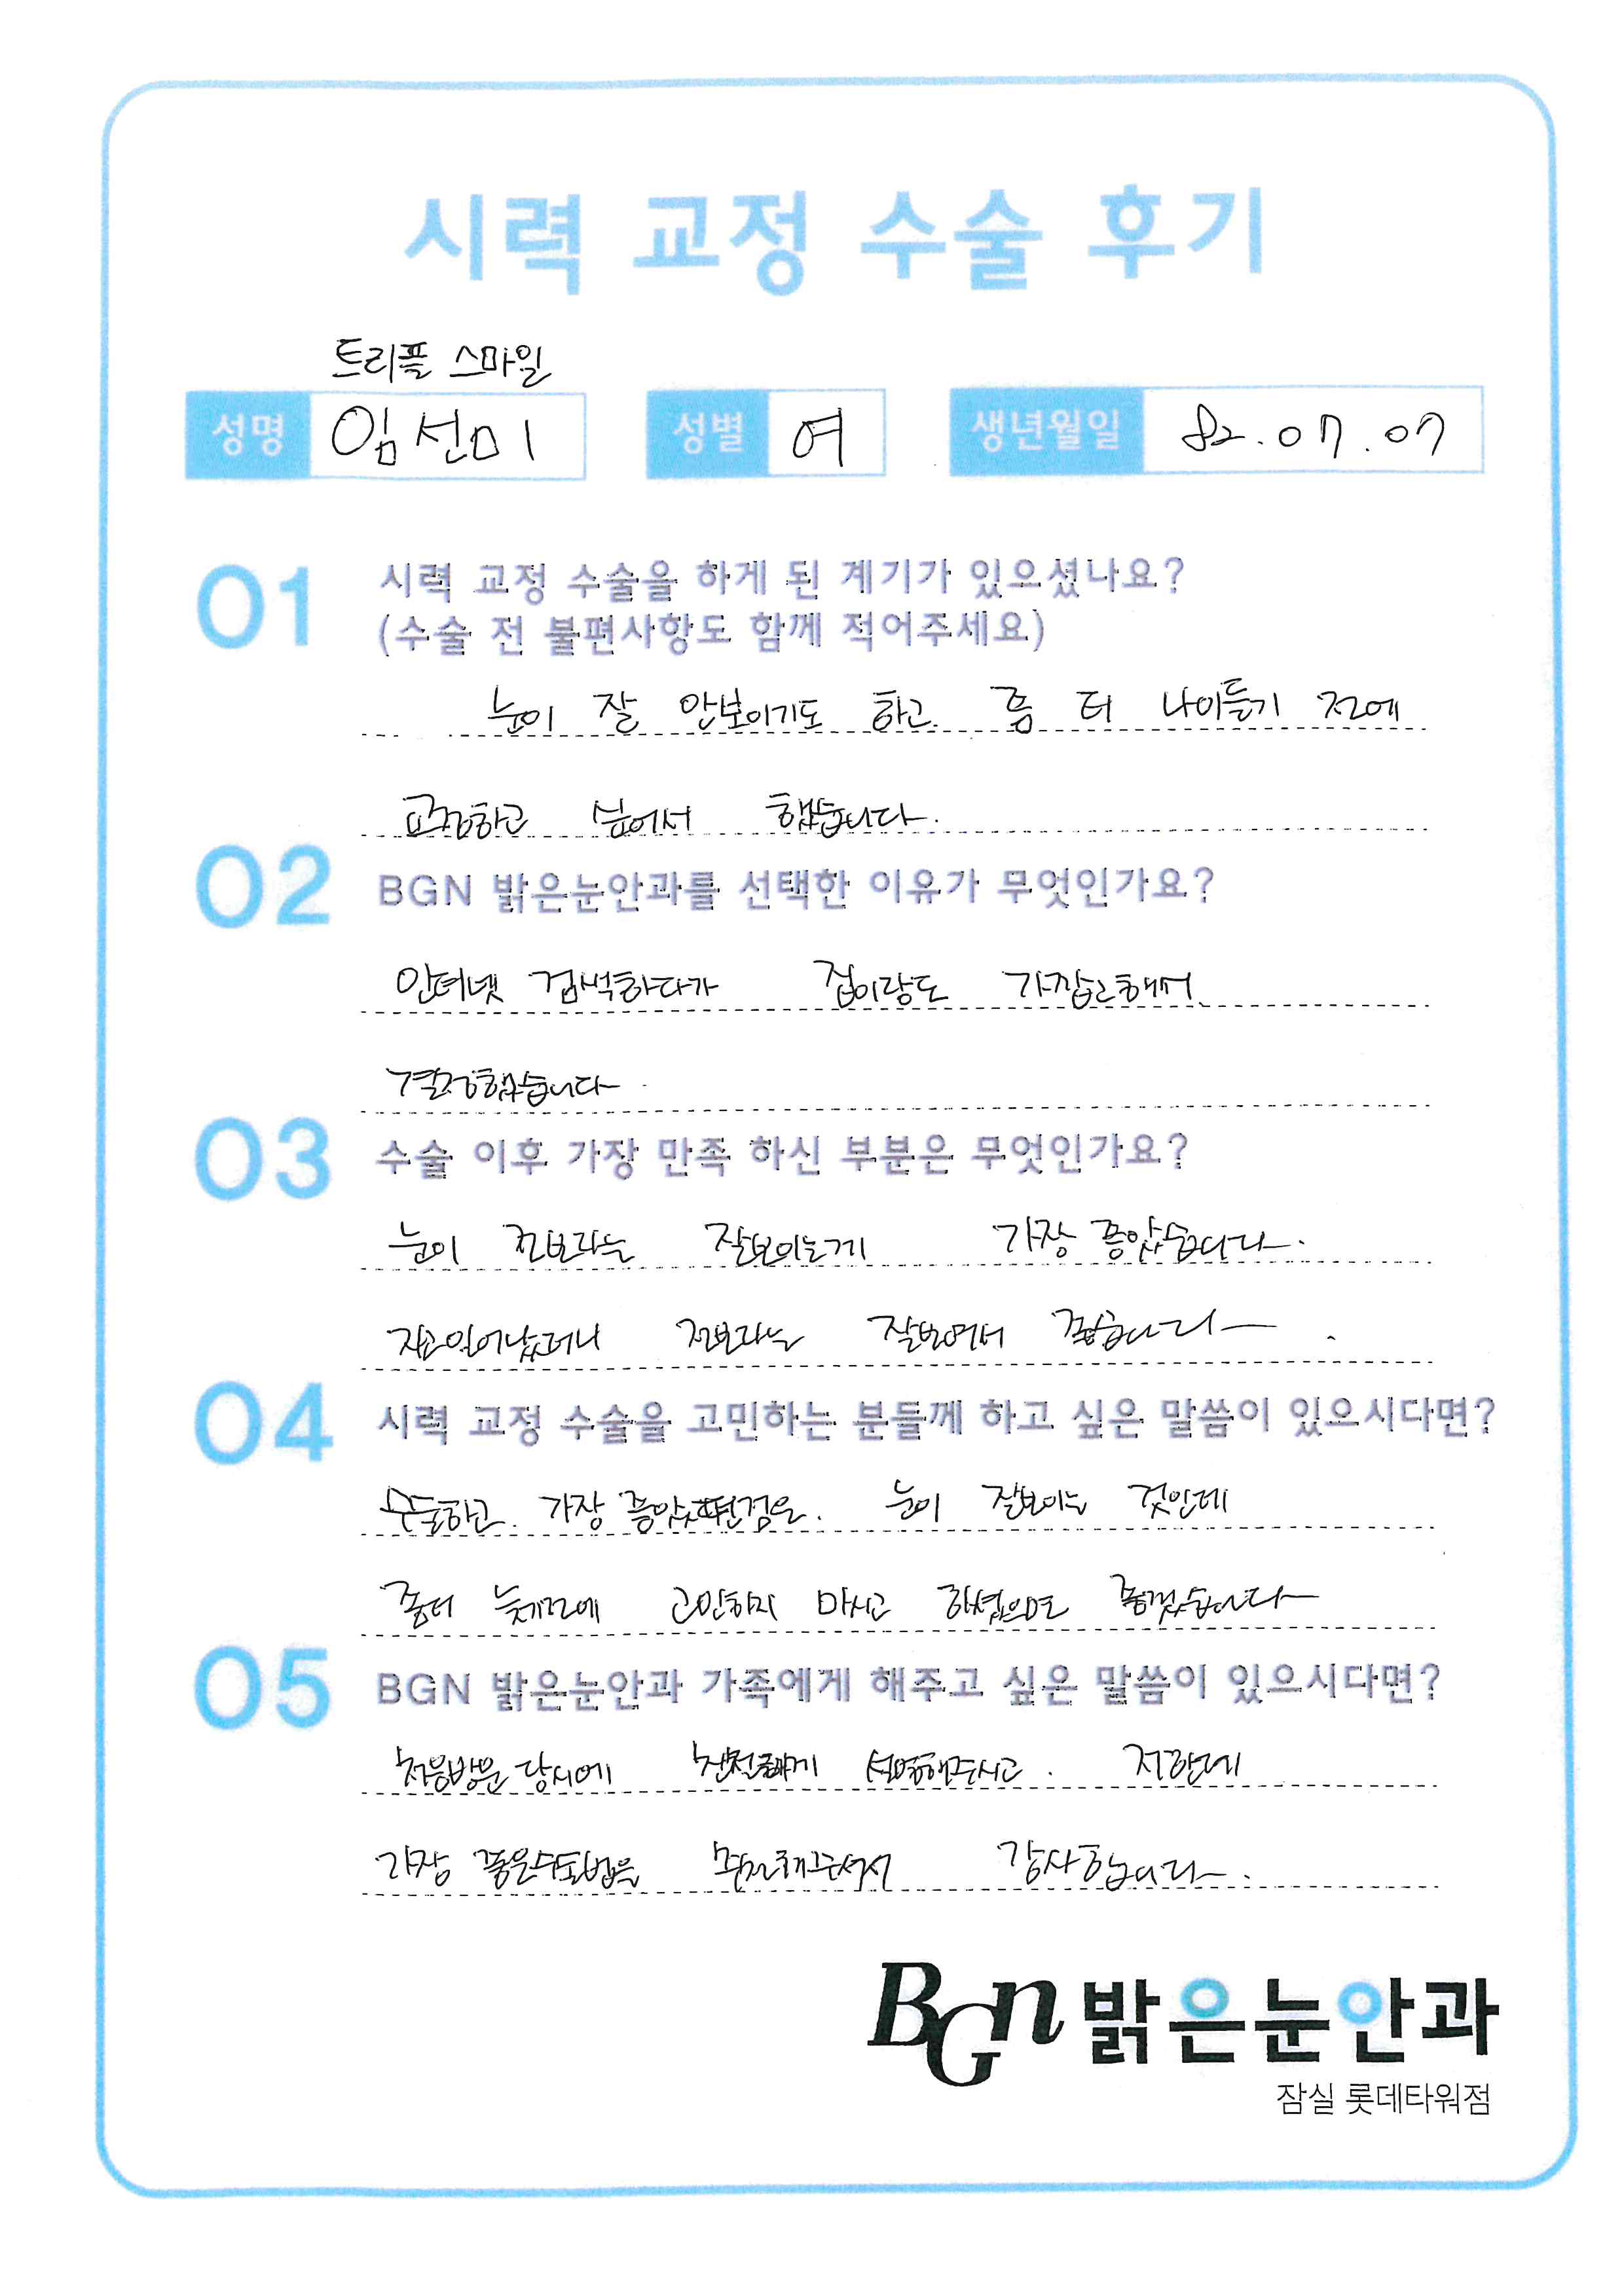 시력 교정 수술 후기
트리플 스마일
성명 임선미 성별 여 생년월일 82.07.07
01 시력 교정 수술을 하게 된 계기가 있으셨나요?
(수술 전 불편사항도 함께 적어주세요)
눈이 잘 안보이기도 하고. 좀 더 나이들기 전에
교정하고 싶어서 했습니다.
02 BGN 밝은눈안과를 선택한 이유가 무엇인가요?
인터넷 검색하다가 집이랑도 가깝고해서
결정했습니다.
03 수술 이후 가장 만족 하신 부분은 무엇인가요?
눈이 전보다는 잘보이는게 가장 좋았습니다.
자고일어났더니 전보다는 잘보여서 좋습니다.
04 시력 교정 수술을 고민하는 분들께 하고 싶은 말씀이 있으시다면?
수술하고. 가장 좋았던점은. 눈이 잘보이는 것인데
좀더 늦기전에 고민하지 마시고 하셨으면 좋겠습니다
05 BGN 밝은눈안과 가족에게 해주고 싶은 말씀이 있으시다면?
처음방문 당시에 친절하게 설명해주시고. 저한테
가장 좋은수술법을 추천해주셔서 감사합니다.
BGN 밝은눈안과
잠실 롯데타워점